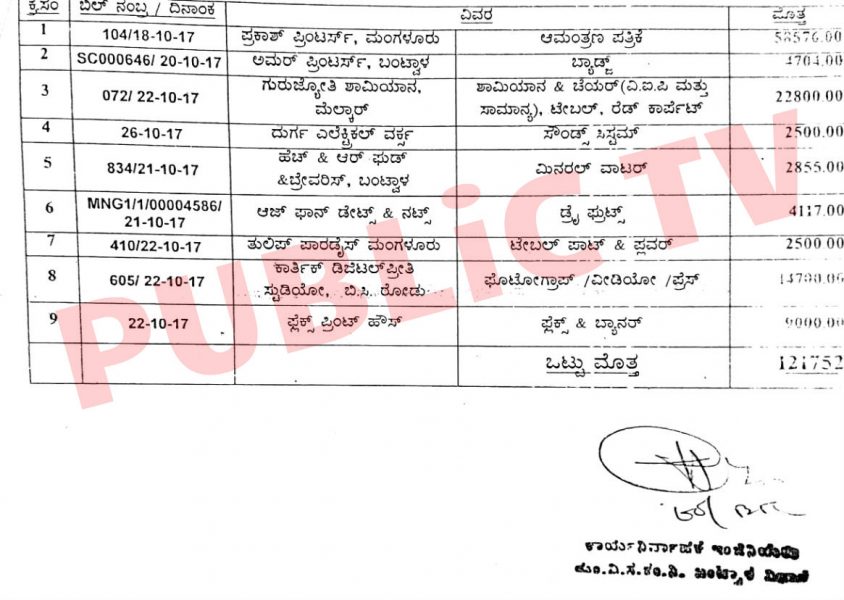 ಕ್ರ.ಸಂ ಬಿಲ್ ನಂಬ್ರ / ದಿನಾಂಕ ವಿವರ ಮೊತ್ತ
1 104/18-10-17 ಪ್ರಕಾಶ್ ಪ್ರಿಂಟರ್ಸ್, ಮಂಗಳೂರು ಆಮಂತ್ರಣ ಪತ್ರಿಕೆ 58576.00
2 SC000646/ 20-10-17 ಅಮರ್ ಪ್ರಿಂಟರ್ಸ್, ಬಂಟ್ವಾಳ ಬ್ಯಾಡ್ಜ್ 4704.00
3 072/ 22-10-17 ಗುರುಜ್ಯೋತಿ ಶಾಮಿಯಾನ, ಶಾಮಿಯಾನ & ಚೆಯರ್(ವಿ.ಐ.ಪಿ ಮತ್ತು 22800.00
ಮೆಲ್ಕಾರ್ ಸಾಮಾನ್ಯ), ಟೇಬಲ್, ರೆಡ್ ಕಾರ್ಪೆಟ್
4 26-10-17 ದುರ್ಗ ಎಲೆಕ್ಟ್ರಿಕಲ್ ವರ್ಕ್ಸ್ ಸೌಂಡ್ಸ್ ಸಿಸ್ಟಮ್ 2500.00
5 834/21-10-17 ಹೆಚ್ & ಆರ್ ಫುಡ್ ಮಿನರಲ್ ವಾಟರ್ 2855.00
&ಬ್ರೇವರಿಸ್, ಬಂಟ್ವಾಳ
6 MNG1/1/00004586/ ಆಜ್ ಫಾನ್ ಡೇಟ್ಸ್ & ನಟ್ಸ್ ಡ್ರೈ ಫ್ರುಟ್ಸ್ 4117.00
21-10-17
7 410/22-10-17 ತುಲಿಪ್ ಪಾರಡೈಸ್ ಮಂಗಳೂರು ಟೇಬಲ್ ಪಾಟ್ & ಪ್ಲವರ್ 2500.00
8 605/ 22-10-17 ಕಾರ್ತಿಕ್ ಡಿಜಿಟಲ್‌ಪ್ರೀತಿ ಫೊಟೋಗ್ರಾಫ್ /ವೀಡಿಯೋ /ಪ್ರೆಸ್
ಸ್ಟುಡಿಯೋ, ಬಿ.ಸಿ. ರೋಡು
9 22-10-17 ಫ್ಲೆಕ್ಸ್ ಪ್ರಿಂಟ್ ಹೌಸ್ ಫ್ಲೆಕ್ಸ್ & ಬ್ಯಾನರ್ 9000.00
ಒಟ್ಟು ಮೊತ್ತ 121752
PUBLiC TV
ಕಾರ್ಯನಿರ್ವಾಹಕ ಇಂಜಿನಿಯರು
ಬಂಟ್ವಾಳ ವಿಭಾಗ